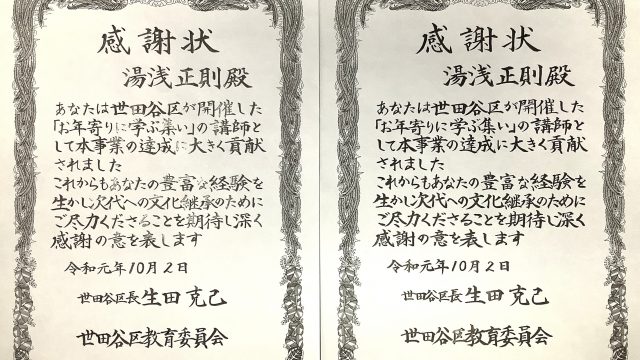 感謝状
湯浅正則殿
あなたは世田谷区が開催した
「お年寄りに学ぶ集い」の講師と
して本事業の達成に大きく貢献
されました
これからもあなたの豊富な経験を
生かし次代への文化継承のために
ご尽力くださることを期待し深く
感謝の意を表します
令和元年10月2日
世田谷区長 生田克己
世田谷区教育委員会
感謝状
湯浅正則殿
あなたは世田谷区が開催した
「お年寄りに学ぶ集い」の講師と
して本事業の達成に大きく貢献
されました
これからもあなたの豊富な経験を
生かし次代への文化継承のために
ご尽力くださることを期待し深く
感謝の意を表します
令和元年10月2日
世田谷区長 生田克己
世田谷区教育委員会